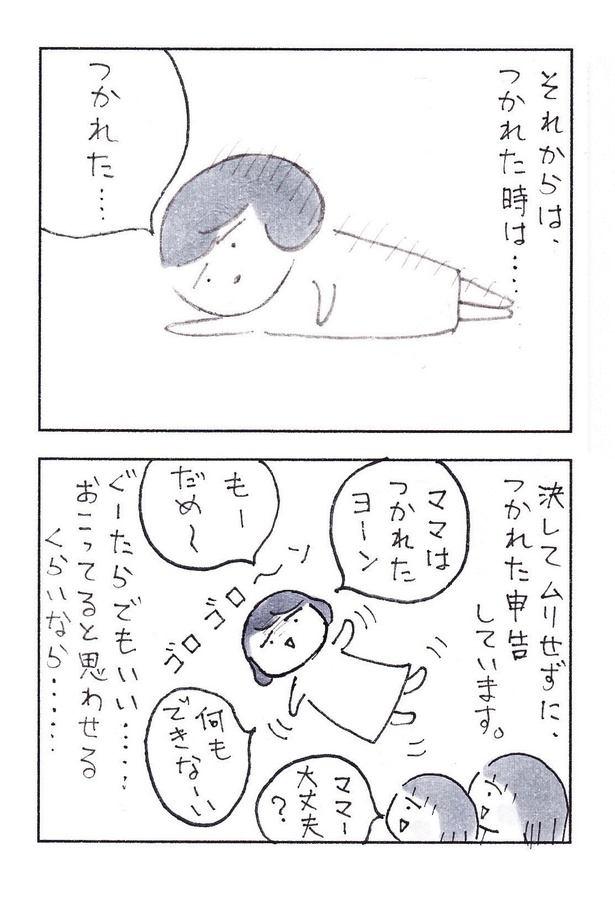 それからは、
つかれた時は……
つかれた…
決してムリせずに、
つかれた申告
しています。
ママは
つかれた
ヨーン
もー
だめ〜
ゴロゴロ〜ン
何も
できなーい
ママー
大丈夫
?
ぐーたらでもいい……
おこってると思わせる
くらいなら……